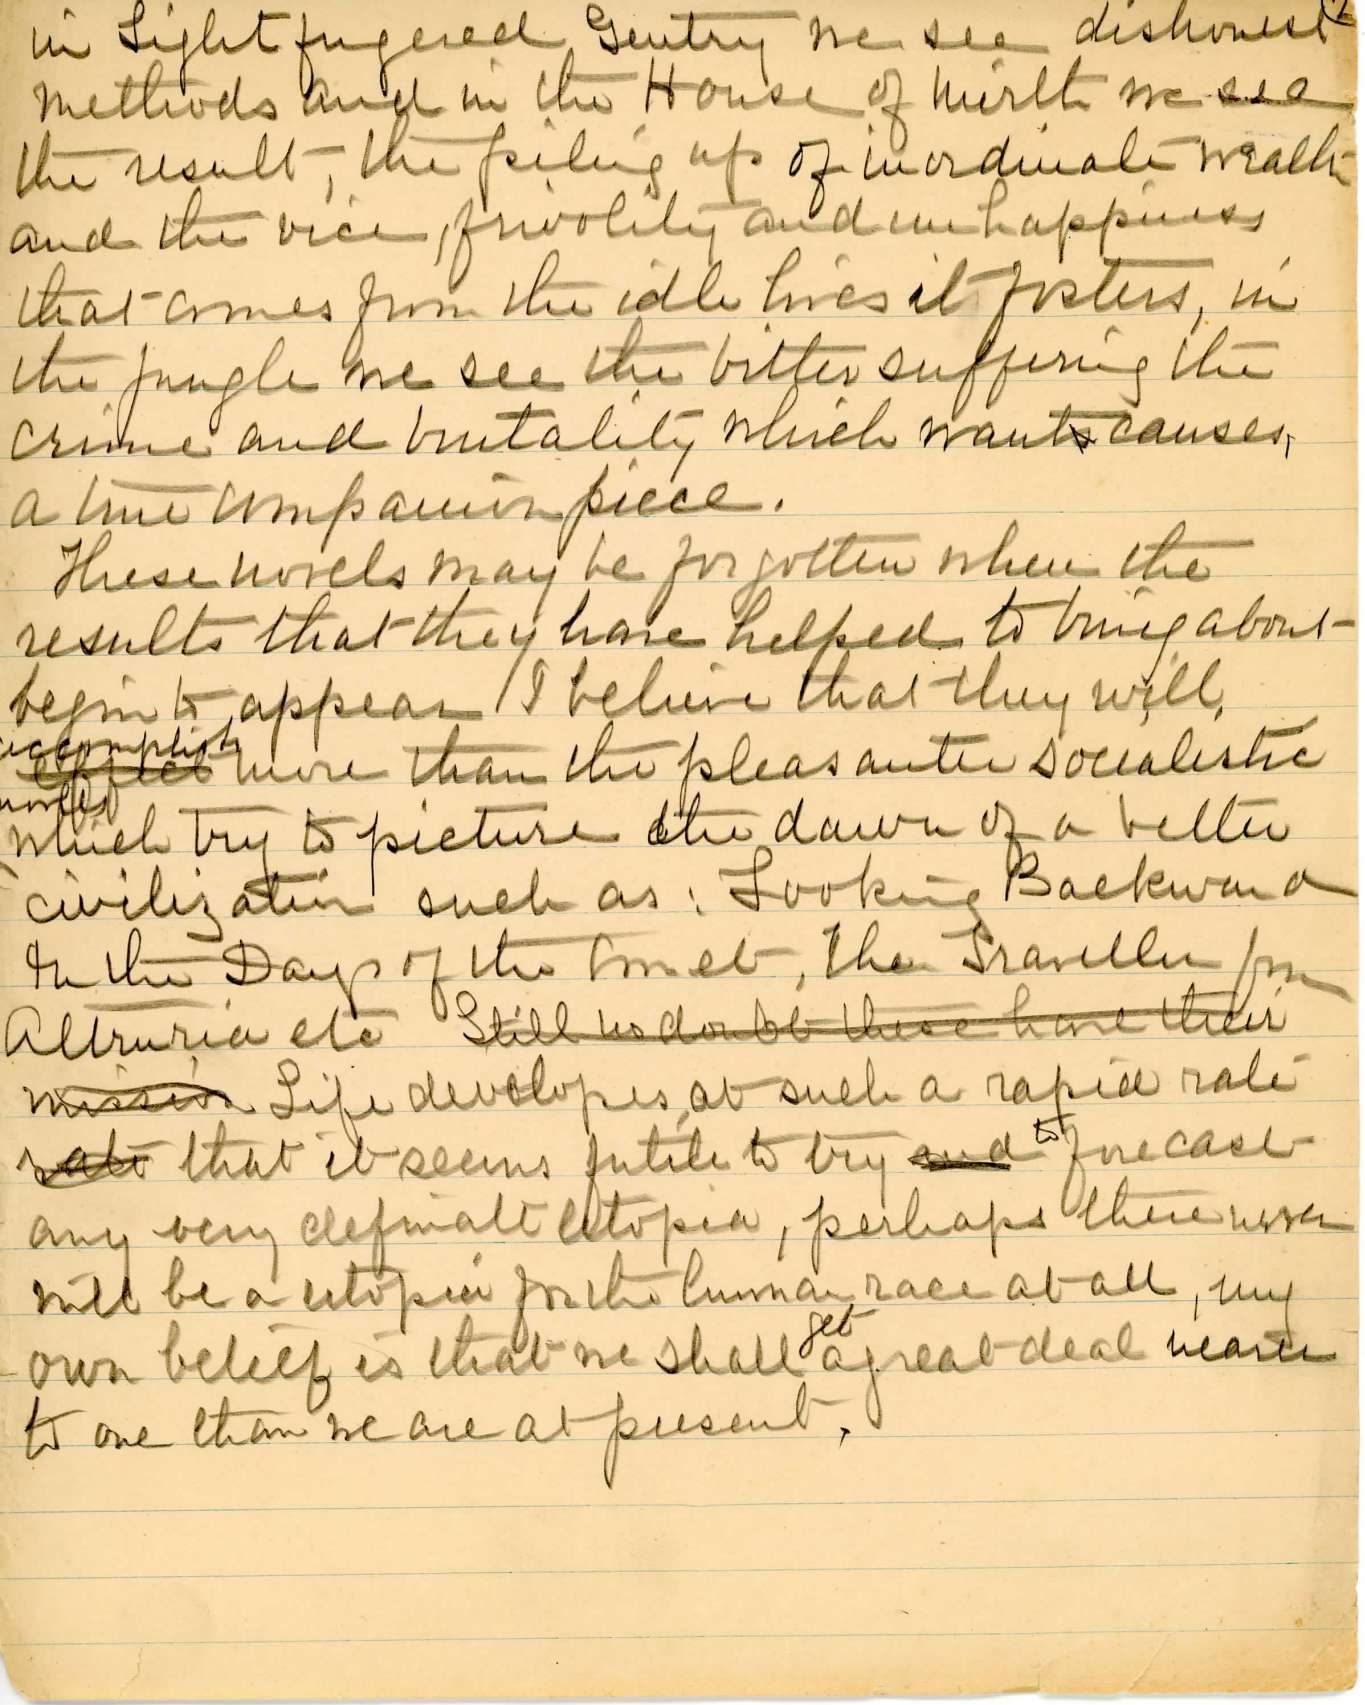 in Light fingered Gentry we see dishonest
methods and in the House of Mirth we see
the result, the piling up of inordinate wealth
and the vice, frivolity and unhappiness
that comes from the idle lives it fosters, in
the Jungle we see the bitter suffering the
crime and brutality which want causes,
a true companion piece.
These novels may be forgotten when the
results that they have helped to bring about
begin to appear I believe that they will,
accomplish
effect more than the pleasanter socialistic
novels
which try to picture the dawn of a better
civilization such as: Looking Backward
In the Days of the Comet, The Traveller from
Altruria etc Still no doubt these have their
mission Life developes, at such a rapid rate
rate that it seems futile to try and to forecast
any very definate Utopia, perhaps there never
will be a utopia for the human race at all, my
own belief is that we shall get a great deal nearer
to one than we are at present.